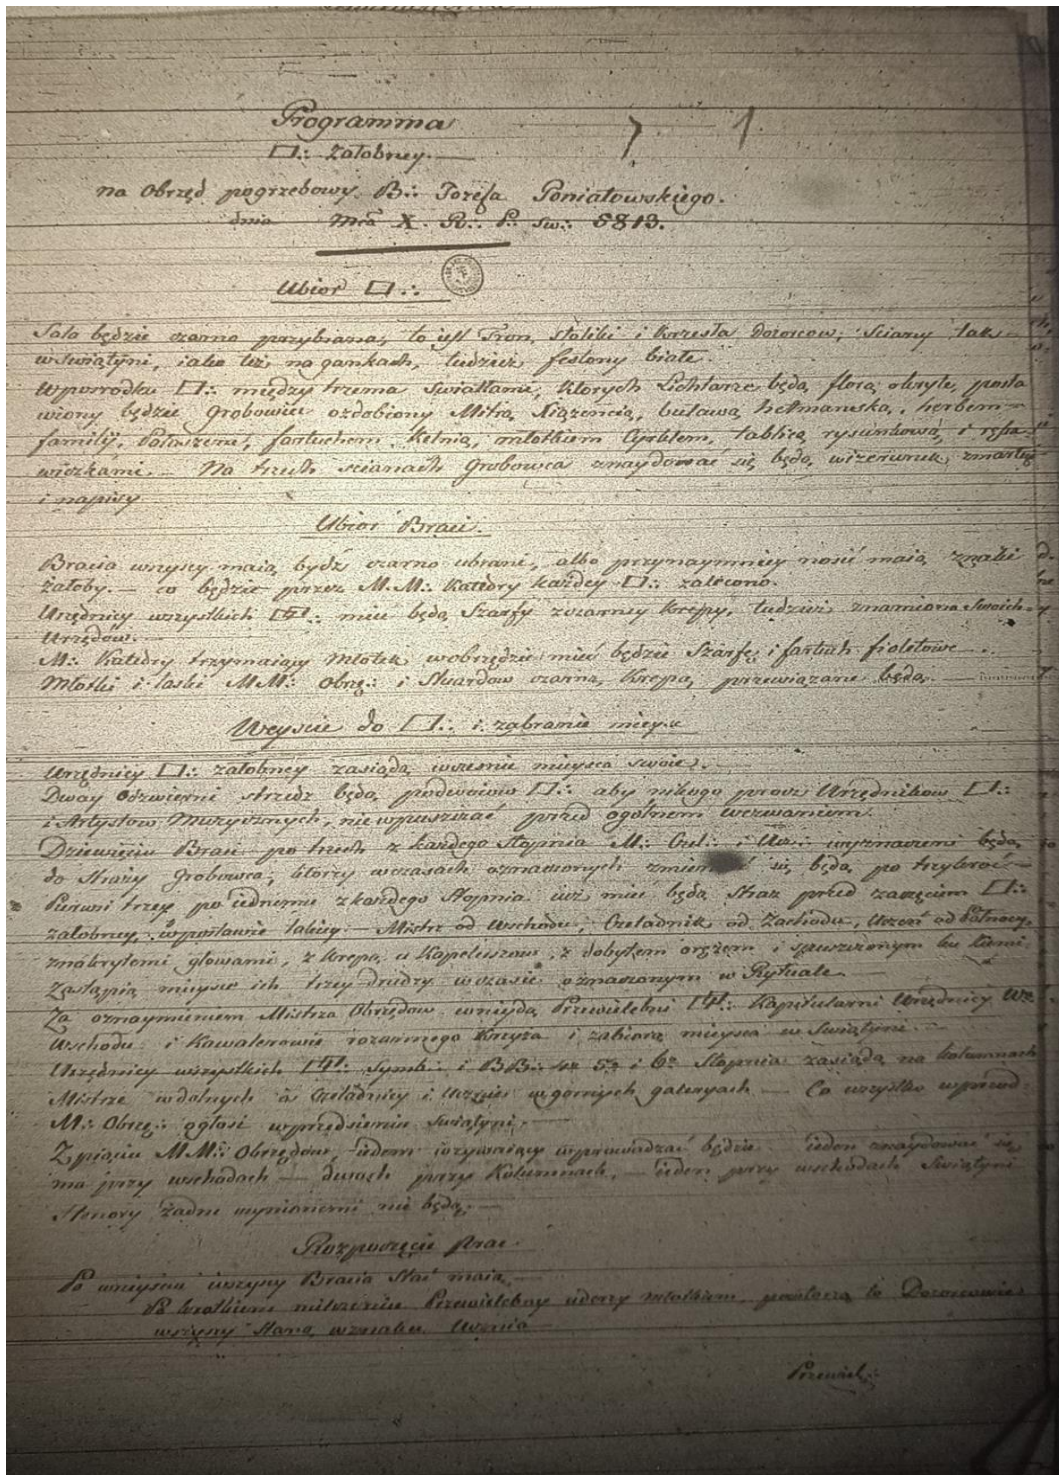 Programma
7 1
▭∴ Załobney.
na Obrzęd pogrzebowy B∴ Jozefa Poniatowskiego.
dnia Mca X. R∴ P∴ Sw∴ 5813.
Ubior ▭∴
Sala będzie czarno przybrana, to iest Tron, Stoliki i Krzesła Dozorcow, Sciany tak
w swiątyni, iako też na gankach, tudzież festony białe.
W posrodku ▭∴ między trzema Swiatłami, ktorych Lichtarze będą florą okryte, posta
wiony będzie Grobowiec ozdobiony Mitrą Xiążencią, buławą hetmanską, herbem
familij, Pałaszem, fartuchem, Kelnią, młotkiem Cyrklem, tablicą rysunkową, i ręka
wiczkami. Na trzech scianach Grobowca znaydować się będą wizerunek zmarłego
i napisy
Ubior Braci.
Bracia wszyscy maią bydź czarno ubrani, albo przynaymniey nosić maią znaki
żałoby. — co będzie przez M.M∴ Katedry każdey ▭∴ zalecono.
Urzędnicy wszystkich ▭∴ mieć będą Szarfy z czarney krepy, tudzież znamiona Swoich
Urzędow.
M∴ Katedry trzymaiący Młotek w obrzędzie mieć będzie Szarfę i fartuch fioletowe.
Młotki i laski MM∴ Obrzę∴ i Stuardow czarną Krepą przewiązane będą.
Weyscie do ▭∴ i zabranie mieysc
Urzędnicy ▭∴ załobney zasiądą wczesnie mieysca swoie.
Dway Odzwierni strzedz będą podwoiow ▭∴ aby nikogo procz Urzędnikow ▭∴
i Artystow Muzycznych, nie wpuszczać przed ogólnem wezwaniem.
Dziewięciu Braci po trzech z każdego Stopnia M∴ Czel∴ i Ucz∴ wyznaczeni będą
do Straży Grobowca, ktorzy w czasach oznaczonych zmieniać się będą po trzykroć
Pierwsi trzey po iednemu z każdego Stopnia iuż mieć będą Straż przed zaczęciem ▭∴
załobney, w postawie takiey — Mistrz od Wschodu, Czeladnik od Zachodu, Uczeń od Pułnocy,
z nakrytemi głowami, z krepą u Kapeluszow, z dobytem orężem i spuszczonym ku ziemi
Zastąpią mieysce ich trzey drudzy w czasie oznaczonym w Rytuale
Za oznaymieniem Mistrza Obrzędow wnijdą Przewielebni ▭∴ Kapitularni Urzędnicy W∴
Wschodu i Kawalerowie rozannego Krzyża i zabiorą mieysca w Swiątyni.
Urzędnicy wszystkich ▭∴ Symb∴ i BB∴ 4º 5º i 6º Stopnia zasiądą na kolumnach
Mistrze w dolnych a Czeladnicy i Uczniowie w gornych galeryach — Co wszystko wprzod
M∴ Obrzę∴ ogłosi w przedsieniu Swiątyni.
Z pięciu MM∴ Obrzędow, ieden wzywaiący wprowadzać będzie ieden znaydować się
ma przy wschodach — dwoch przy Kolumnach, — ieden przy wschodach Swiątyni
żadne będą.
Rozpoczęcie Prac.
Po wnijsciu wszyscy Bracia stać maią.
Po krotkiem milczeniu Przewielebny uderzy młotkiem, powtorzą to Dozorcowie
wszyscy staną w znaku Ucznia
Przewiel∴